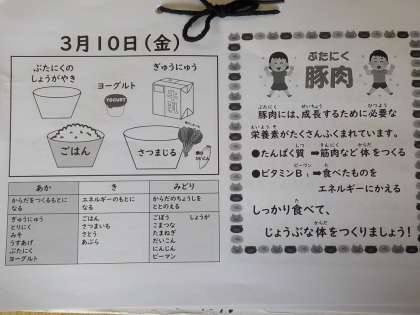 3月10日(金)
ぶたにくの
しょうがやき
ヨーグルト
YOGURT
ぎゅうにゅう
牛乳
ごはん
さつまじる
あか
き
みどり
からだをつくるもとに
なる
エネルギーのもとに
なる
からだのちょうしを
ととのえる
ぎゅうにゅう
とりにく
みそ
うすあげ
ぶたにく
ヨーグルト
ごはん
さつまいも
さとう
あぶら
ごぼう しょうが
こまつな
たまねぎ
だいこん
にんじん
ピーマン
ぶたにく
豚肉
豚肉には、成長するために必要な
栄養素がたくさんふくまれています。
●たんぱく質 ➡筋肉など体をつくる
●ビタミンB₁ ➡食べたものを
エネルギーにかえる
しっかり食べて、
じょうぶな体をつくりましょう!